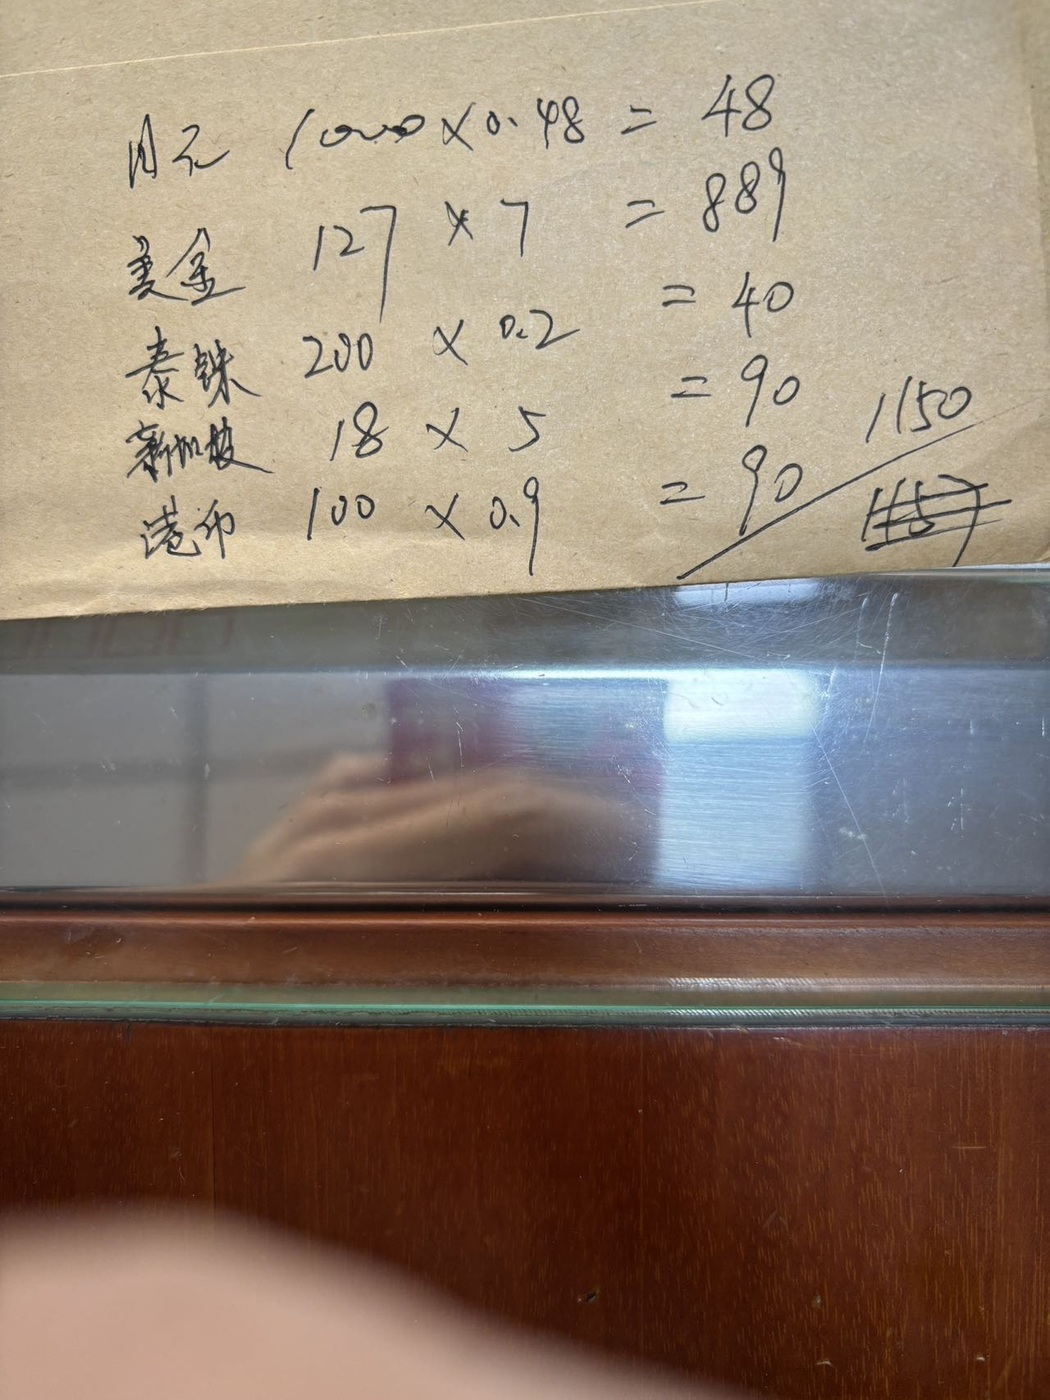 日元 1000×0.48 = 48
美金 127 × 7 = 889
泰铢 200 × 0.2 = 40
新加坡 18 × 5 = 90
港币 100 × 0.9 = 90
1150
1157